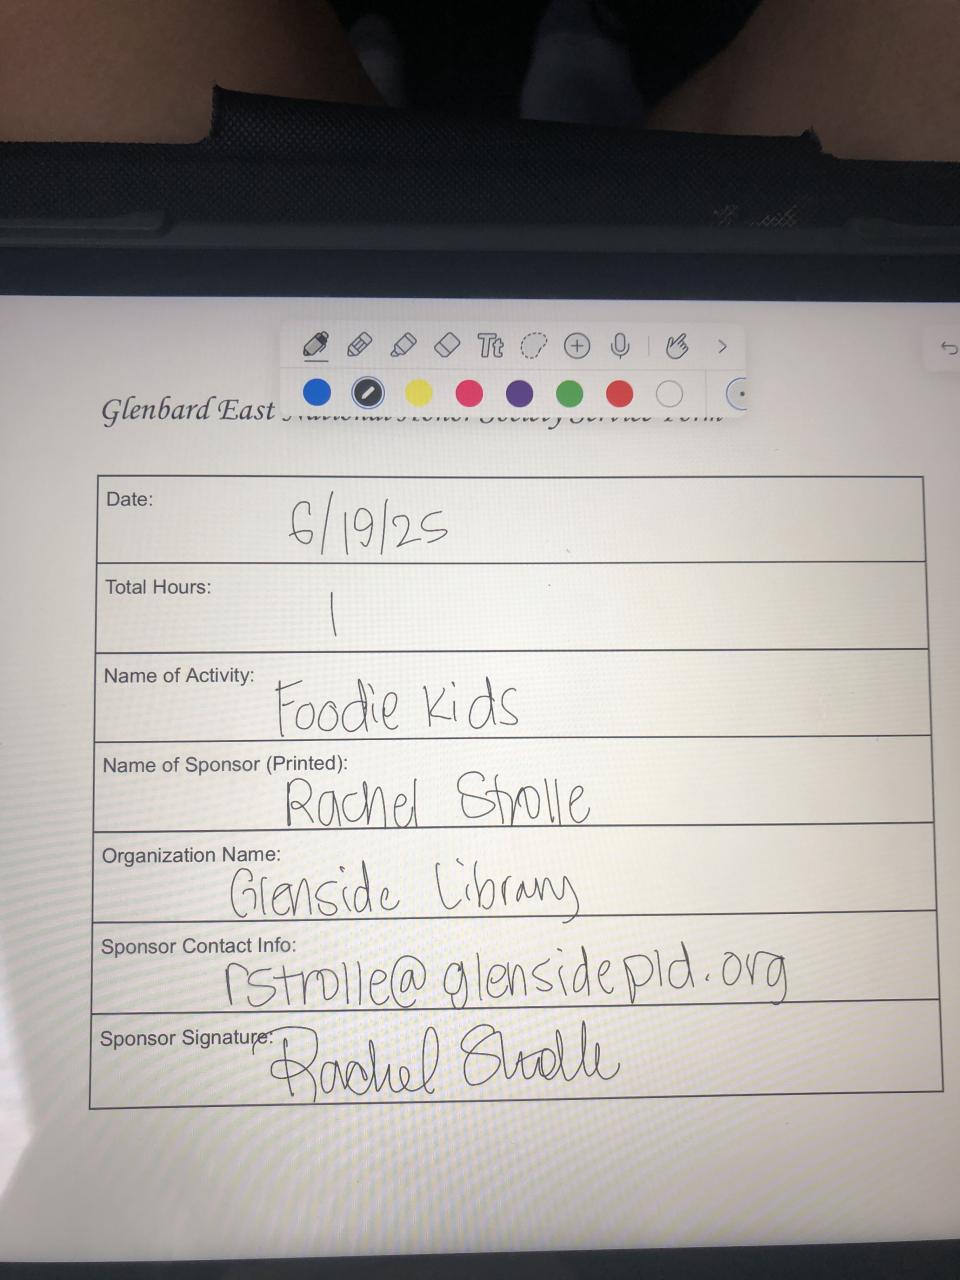 Tt
Glenbard East National Honor Society Service Form
Date: 6/19/25
Total Hours: 1
Name of Activity: Foodie Kids
Name of Sponsor (Printed): Rachel Strolle
Organization Name: Glenside Library
Sponsor Contact Info: rstrolle@glensidepld.org
Sponsor Signature: Rachel Strolle